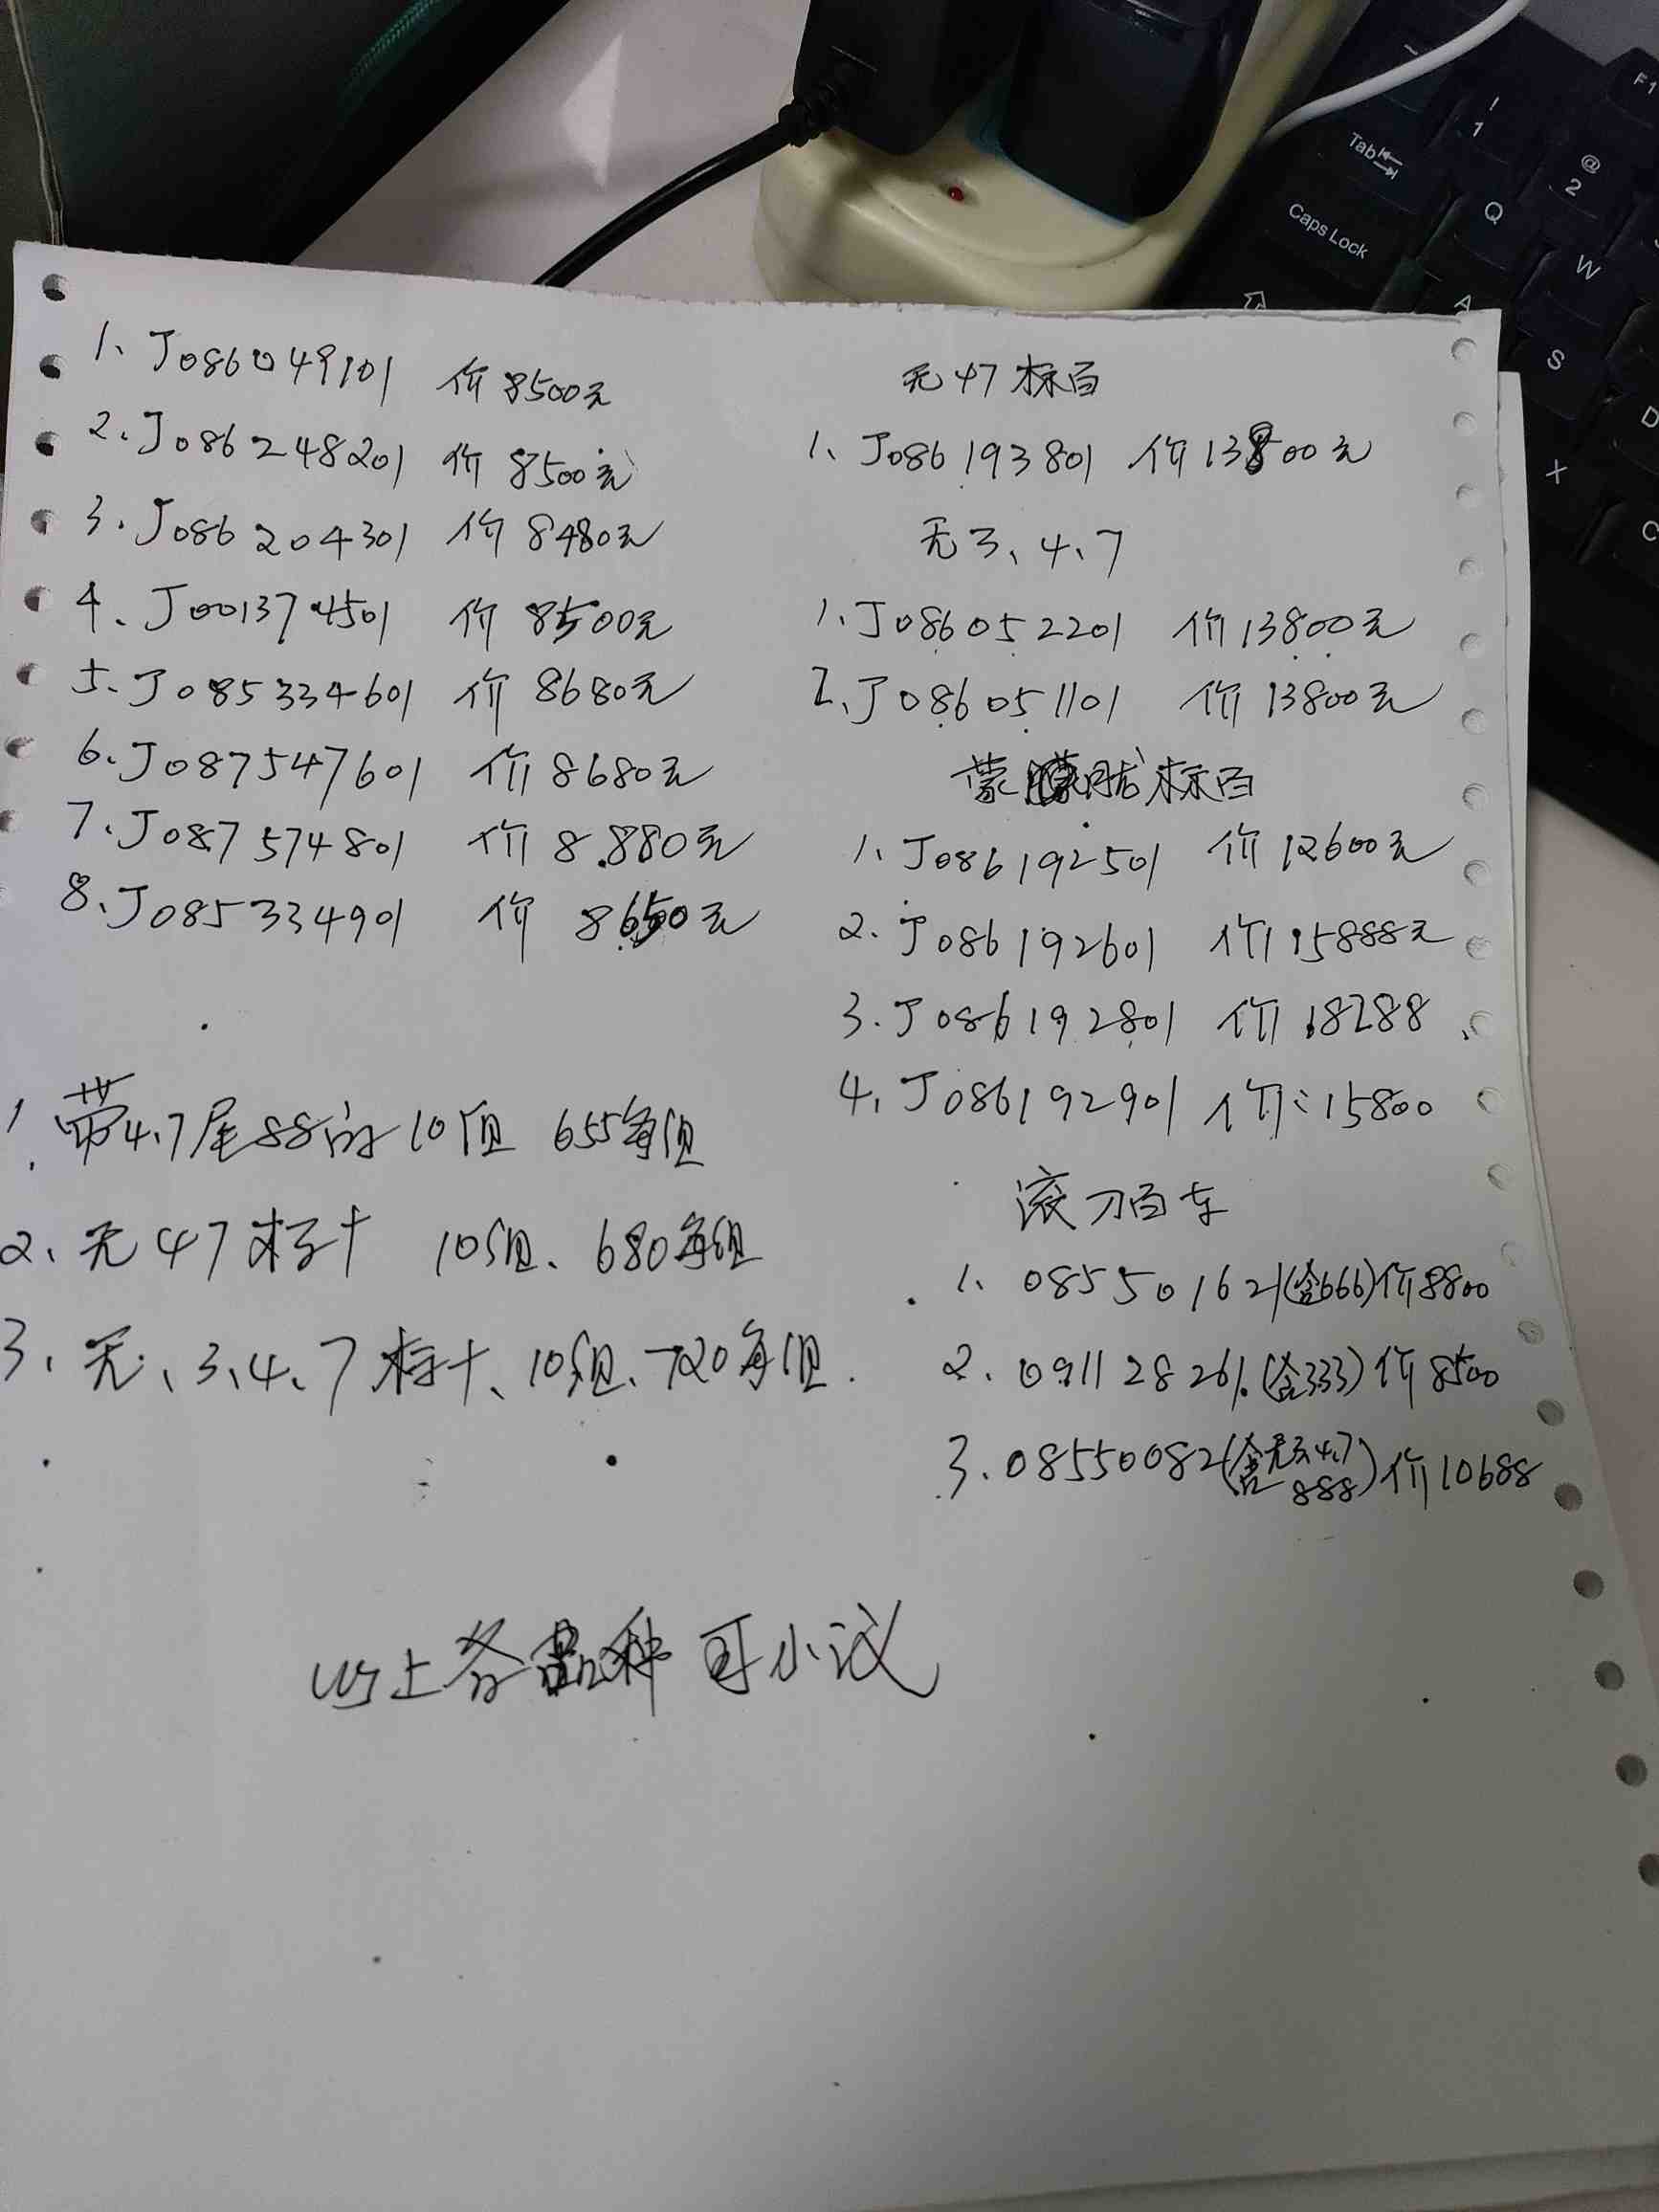 1、J086049101 价8500元
2.J086248201 价8500元
3.J086204301 价8480元
4、J001374501 价8500元
5.J085334601 价8680元
6.J087547601 价8680元
7.J087574801 价8.880元
8.J085334901 价8650元
1、带4.7尾88的10组 655每组
2、无47标十 10组、680每组
3、无、3、4、7标十、10组、720每组.
无47标百
1、J086193801 价13800元
无3、4、7
1.J086052201 价13800元
2、J086051101 价13800元
蒙 标百
1、J086192501 价12600元
2.J086192601 价15888元
3.J086192801 价18288
4、J086192901 价:15800
滚刀百车
1、085501621(含666)价8800
2.091128261.(含333)价8500
3.08550082(含无3.4.7 888)价10688
以上各品种可小议
Tab
Caps Lock
!
1
@
2
F1
Q
W
A
S
D
X
C